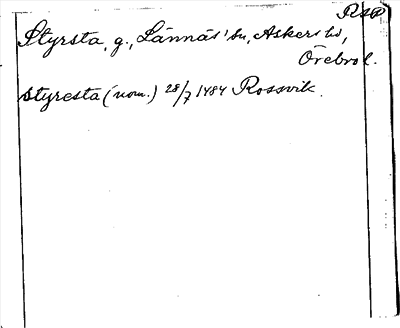 RSP
Styrsta, g., Lännäs' sn, Askers hd,
Örebro l.
styresta (nom.) 28/7 1484 Rossvik.